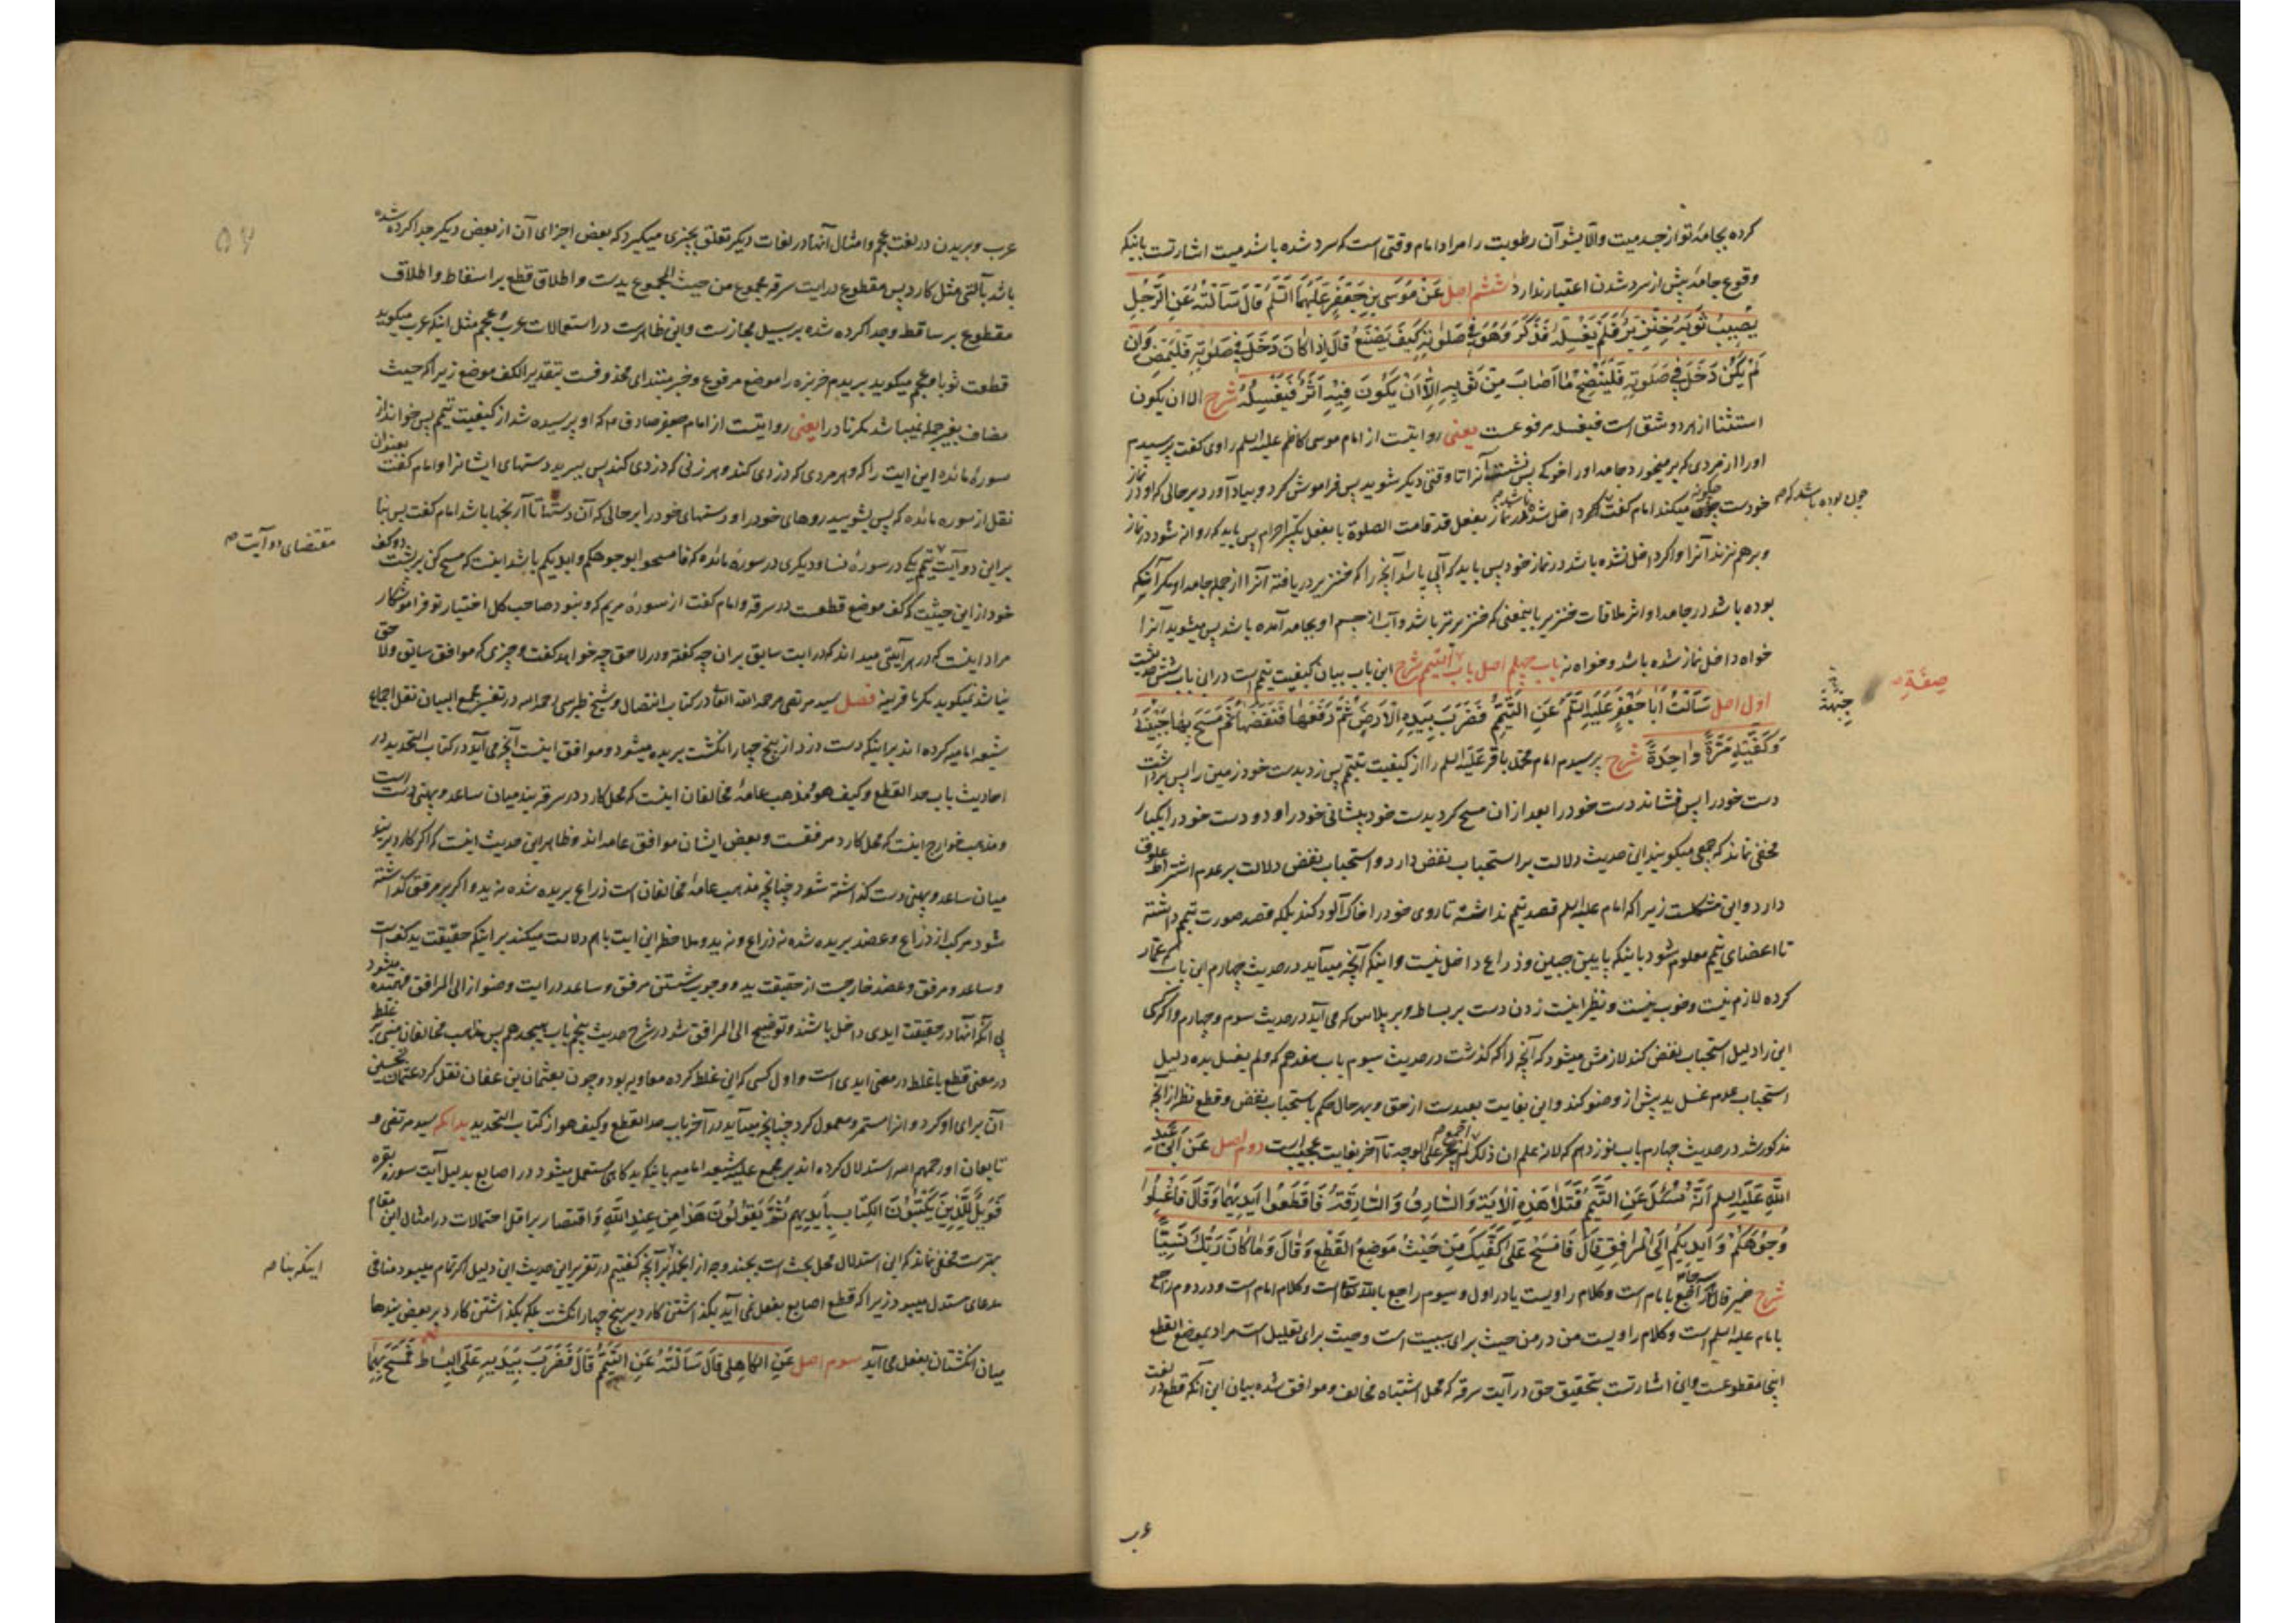 کرده بجامهٔ تو از جسد میت والا بشو آن رطوبت را مراد امام وقتی است که سرد شده باشد میت اشارتست باینکه
وقوع جامه پیش از سرد شدن اعتبار ندارد ششم اصل عَنْ مُوسَی بنِ جَعْفَرٍ عَلَیْهِمَا السَّلَمُ قَالَ سَأَلْتُهُ عَنِ الرَّجُلِ
یُصِیبُ ثَوْبَهُ خِنْزِیرٌ فَلَمْ یَغْسِلْهُ فَذَکَرَ وَهُوَ فِی صَلٰوتِهِ کَیْفَ یَصْنَعُ قَالَ إِذَا کَانَ دَخَلَ فِی صَلٰوتِهِ فَلْیَمْضِ وَإِنْ
لَمْ یَکُنْ دَخَلَ فِی صَلٰوتِهِ فَلْیَنْضِحْ مَا أَصَابَ مِنْ ثَوْبِهِ إِلَّا أَنْ یَکُونَ فِیْهِ أَثَرٌ فَیَغْسِلُهُ شرح الا ان یکون
استثنا از هر دو شق است فیغسله مرفوعست یعنی روایتست از امام موسی کاظم علیه السلم راوی گفت پرسیدم
او را از مردی که بر میخورد جامه او را خوک پس نشست آنرا تا وقتی دیگر شوید پس فراموش کرد و بیاد آورد بر حالی که او در نماز
خودست چگونه میکند امام گفت که اگر داخل شده باشد در نماز بفعل قد قامت الصلوة یا بفعل تکبیر احرام پس باید که روانه شود در نماز
چون بوده باشد که صح
و بر هم نزند آنرا و اگر داخل نشده باشد در نماز خود پس باید که آبی پاشد آنچه را که خنزیر دریافته آنرا از جمله جامه او مگر آنکه
بوده باشد در جامه او اثر ملاقات خنزیر باینمعنی که خنزیر تر باشد و آب از جسم او بجامه آمده باشد پس میشوید آنرا
خواه داخل نماز شده باشد و خواه نه باب چهلم اصل باب التیمم شرح این باب بیان کیفیت تیمم است در این باب شش حدیث است
اول اصل سَأَلْتُ أَبَا جَعْفَرٍ عَلَیْهِ السَّلَمُ عَنِ التَّیَمُّمِ فَضَرَبَ بِیَدِهِ الْأَرْضَ ثُمَّ رَفَعَهَا فَنَفَضَهَا ثُمَّ مَسَحَ بِهَا جَبِیْنَهُ
جَبْهَتَهُ
صِفَةِ
وَکَفَّیْهِ مَرَّةً وَاحِدَةً شرح پرسیدم امام محمد باقر علیه السلم را از کیفیت تیمم پس زد بدست خود زمین را پس برداشت
دست خود را پس فشاند دست خود را بعد از ان مسح کرد بدست خود پیشانی خود را و دو دست خود را یکبار
مخفی نماند که جمعی میکویند این حدیث دلالت بر استحباب نفض دارد و استحباب نفض دلالت بر عدم اشتراط علوق
دارد و این مشکلست زیرا که امام علیه السلم قصد تیمم نداشته تا روی خود را خاک آلود کند بلکه قصد صورت تیمم داشته
تا اعضای تیمم معلوم شود باینکه پایین جبین و ذراع داخل نیست و اینکه آنچه میآید در حدیث چهارم این باب که عمار
کرده لازم نیست و خوب نیست و نظیر اینست زدن دست بر بساط و بر پلاس که می آید در حدیث سوم و چهارم و اگر کسی
این را دلیل استحباب نفض کند لازمش میشود که آنچه را که گذشت در حدیث سیوم باب هفدهم که ولم یغسل یده دلیل
استحباب عدم غسل ید پیش از وضو کند و این بغایت بعیدست از حق و بهر حال حکم باستحباب نفض و قطع نظر از آنچه
مذکور شد در حدیث چهارم باب نوزدهم که لانه علم ان ذلک اجمع لم یجر علی الوجه تا آخر بغایت عجیب است دوم اصل عَنْ أَبِی عَبْدِ
اللهِ عَلَیْهِ السلم أَنَّهُ سُئِلَ عَنِ التَّیَمُّمِ فَتَلَا هَذِهِ الْاٰیَةَ وَالسَّارِقُ وَالسَّارِقَةُ فَاقْطَعُوا أَیْدِیَهُمَا وَقَالَ فَاغْسِلُوا
وُجُوْهَکُمْ وَأَیْدِیَکُمْ إِلَی الْمَرَافِقِ قَالَ فَامْسَحْ عَلٰی کَفَّیْکَ مِنْ حَیْثُ مَوْضِعُ الْقَطْعِ وَقَالَ وَمَا کَانَ رَبُّکَ نَسِیًّا
شرح ضمیر قال راجع بامام است و کلام راویست یا در اول و سیوم راجع بالله تعالی است و کلام امام است و در دوم راجع
بامام علیه السلم است و کلام راویست من در من حیث برای سببیت است و حیث برای تعلیل است مراد بموضع القطع
اینجا مقطوعست و این اشارتست بتحقیق حق در آیت سرقه که محل اشتباه مخالف و موافق شده بیان این آنکه قطع در لغت
عرب
۵۷
عرب و بریدن در لغت عجم و امثال آنها در لغات دیگر تعلق بچیزی میگیرد که بعض اجزای آن از بعض دیگر جدا کرده شده
باشد بآلتی مثل کارد پس مقطوع در ایت سرقه مجموع من حیث المجموع یدست و اطلاق قطع بر اسقاط و اطلاق
مقطوع بر ساقط و جدا کرده شده بر سبیل مجازست و این ظاهرست در استعمالات عرب و عجم مثل اینکه عرب میگوید
قطعت ثوبا و عجم میگوید بریدم خربزه را موضع مرفوع و خبر مبتدای محذوفست بتقدیر الکف موضع زیرا که حیث
مضاف بغیر جمله نمیباشد مگر نادرا یعنی روایتست از امام جعفر صادق ع م که او پرسیده شد از کیفیت تیمم پس خواند از
سورهٔ مائده این ایت را که و هر مردی که دزدی کند و هر زنی که دزدی کند پس ببرید دستهای ایشانرا و امام گفت بعنوان
نقل از سوره مائده که پس بشویید روهای خود را و دستهای خود را بر حالی که آن دستها تا آرنجها باشد امام گفت پس بنا
بر این دو آیت تیمم یکی در سورهٔ نسا و دیگری در سورهٔ مائده که فامسحوا بوجوهکم و ایدیکم باشد اینست که مسح کن بر پشت دو کف
مقتضای دو آیت صح
خود از این حیثیت که کف موضع قطعست در سرقه و امام گفت از سورهٔ مریم که و نبود صاحب کل اختیار تو فراموشکار
مراد اینست که در هر آیتی میداند که در ایت سابق بر ان چه گفته و در لاحق چه خواهد گفت و چیزی که موافق سابق و لاحق
نباشد نمیگوید مگر با قرینه فصل سید مرتضی رحمه الله تعالی در کتاب انتصار و شیخ طبرسی رحمه الله در تفسیر مجمع البیان نقل اجماع
شیعه امامیه کرده اند بر اینکه دست دزد از بیخ چهار انگشت بریده میشود و موافق اینست آنچه می آید در کتاب الحدود در
احادیث باب حد القطع و کیف هو و مذهب عامهٔ مخالفان اینست که محل کارد در سرقه بند میان ساعد و پهنی دست است
و مذهب خوارج اینست که محل کارد مرفقست و بعض ایشان موافق عامه اند و ظاهر این حدیث اینست که اگر کارد بر بند
میان ساعد و پهنی دست گذاشته شود چنانچه مذهب عامهٔ مخالفان است ذراع بریده شده نه ید و اگر بر مرفق گذاشته
شود مرکب از ذراع و عضد بریده شده نه ذراع و نه ید و ملاحظه این ایت باهم دلالت میکند بر اینکه حقیقت ید کف است
و ساعد و مرفق و عضد خارجست از حقیقت ید و وجوب شستن مرفق و ساعد در ایت وضو از الی المرافق فهمیده میشود
بی آنکه آنها در حقیقت ایدی داخل باشند و توضیح الی المرافق شد در شرح حدیث پنجم باب هیجدهم پس مذهب مخالفان مبنی بر غلط
در معنی قطع یا غلط در معنی ایدی است و اول کسی که این غلط کرده معاویه بود و چون بعثمان بن عفان نقل کرد عثمان تحسین
آن برای او کرد و انرا مستمر و معمول کرد چنانچه میآید در آخر باب حد القطع و کیف هو از کتاب الحدود بدانکه سید مرتضی و
تابعان او رحمهم الله استدلال کرده اند بر مجمع علیه شیعه امامیه باینکه ید گاهی مستعمل میشود در اصابع بدلیل آیت سورهٔ بقره
فَوَیْلٌ لِلَّذِینَ یَکْتُبُونَ الْکِتَابَ بِأَیْدِیهِمْ ثُمَّ یَقُولُونَ هَذَا مِنْ عِنْدِ اللّٰهِ وَ اقتصار بر اقل احتمالات در امثال این مقام
بهترست مخفی نماند که این استدلال محل بحث است بچند وجه از انجمله بنا بر آنچه گفتیم در تقریر این حدیث این دلیل اگر تمام میبود منافی
اینکه بنا صح
مدعای مستدل میبود زیرا که قطع اصابع بفعل نمی آید بگذاشتن کارد بر بیخ چهار انگشت بلکه بگذاشتن کارد بر بعض بندها
میان انگشتان بفعل می آید سوم اصل عَنِ الکَاهِلِی قَالَ سَأَلْتُهُ عَنِ التَّیَمُّمِ قَالَ فَضَرَبَ بِیَدِهِ عَلَی الْبِسَاطِ فَمَسَحَ بِهِمَا